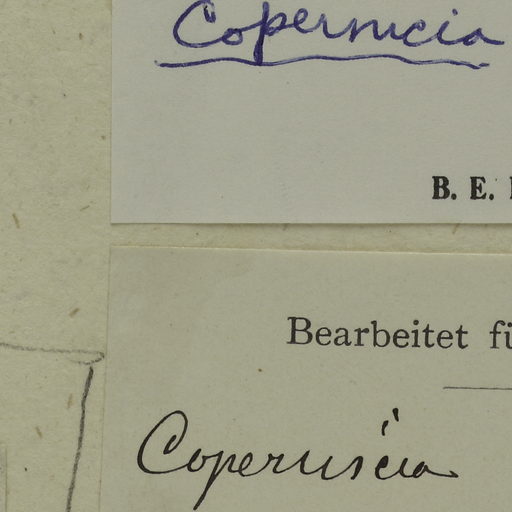 Copernicia
B. E.
Bearbeitet fü
Copernicia